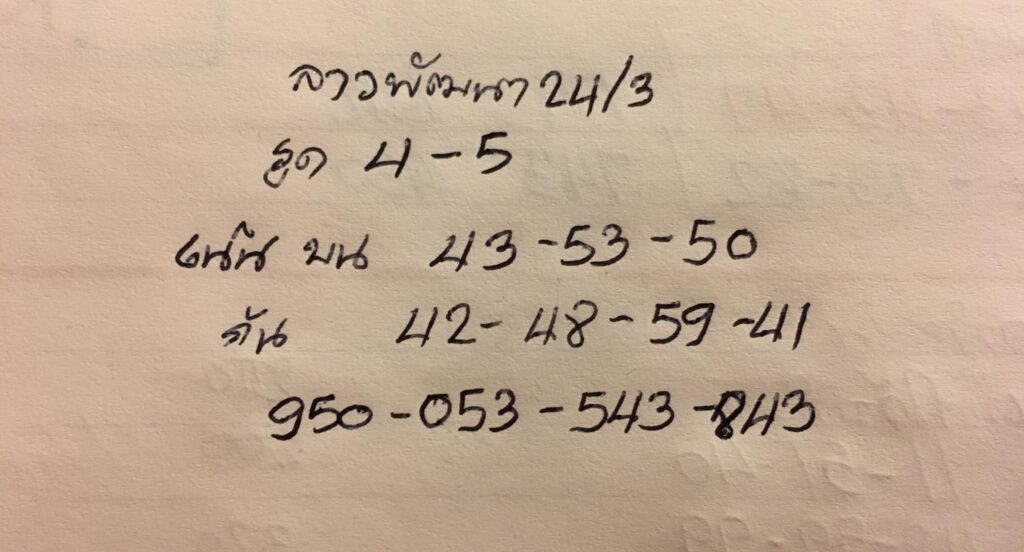 ลาวพัฒนา 24/3
รูด 4-5
เน้น บน 43-53-50
กัน 42-48-59-41
950-053-543-843